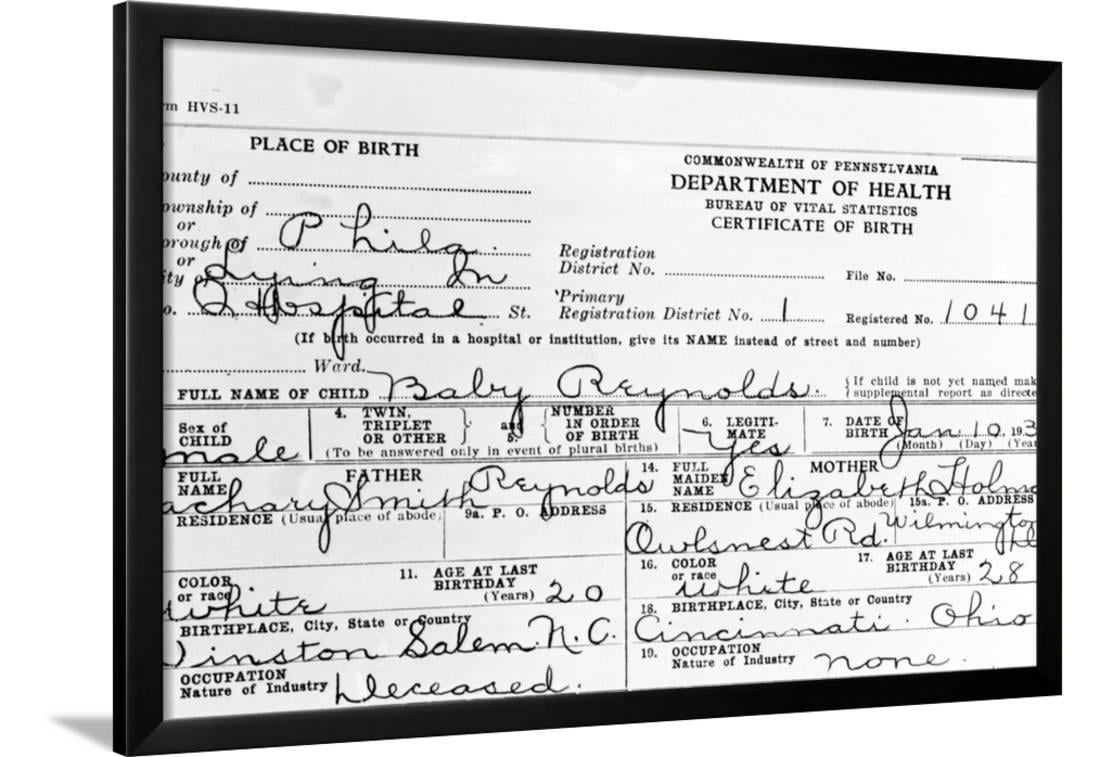 rm HVS-11
PLACE OF BIRTH
ounty of
ownship of
or
orough of Phila.
or
ity of Lying In
o. Hospital St.
(If birth occurred in a hospital or institution, give its NAME instead of street and number)
Ward.
COMMONWEALTH OF PENNSYLVANIA
DEPARTMENT OF HEALTH
BUREAU OF VITAL STATISTICS
CERTIFICATE OF BIRTH
Registration
District No.
File No.
Primary
Registration District No. 1
Registered No. 1041
FULL NAME OF CHILD Baby Reynolds.
If child is not yet named mak
supplemental report as directe
Sex of
CHILD
male
4. TWIN,
TRIPLET
OR OTHER
and
5.
NUMBER
IN ORDER
OF BIRTH
(To be answered only in event of plural births)
6. LEGITI-
MATE
Yes
7. DATE OF
BIRTH Jan 10, 193
(Month) (Day) (Year
FULL
NAME
FATHER
achary Smith Reynolds
RESIDENCE (Usual place of abode)
9a. P. O. ADDRESS
COLOR
or race
White
11. AGE AT LAST
BIRTHDAY
(Years) 20
BIRTHPLACE, City, State or Country
Winston Salem. N.C.
OCCUPATION
Nature of Industry Deceased.
14. FULL
MAIDEN
NAME
MOTHER
Elizabeth Holm
15. RESIDENCE (Usual place of abode)
15a. P. O. ADDRESS
Owlsnest Rd. Wilmington
De
16. COLOR
or race
White
17. AGE AT LAST
BIRTHDAY
(Years) 28
18. BIRTHPLACE, City, State or Country
Cincinnati. Ohio
19. OCCUPATION
Nature of Industry none.